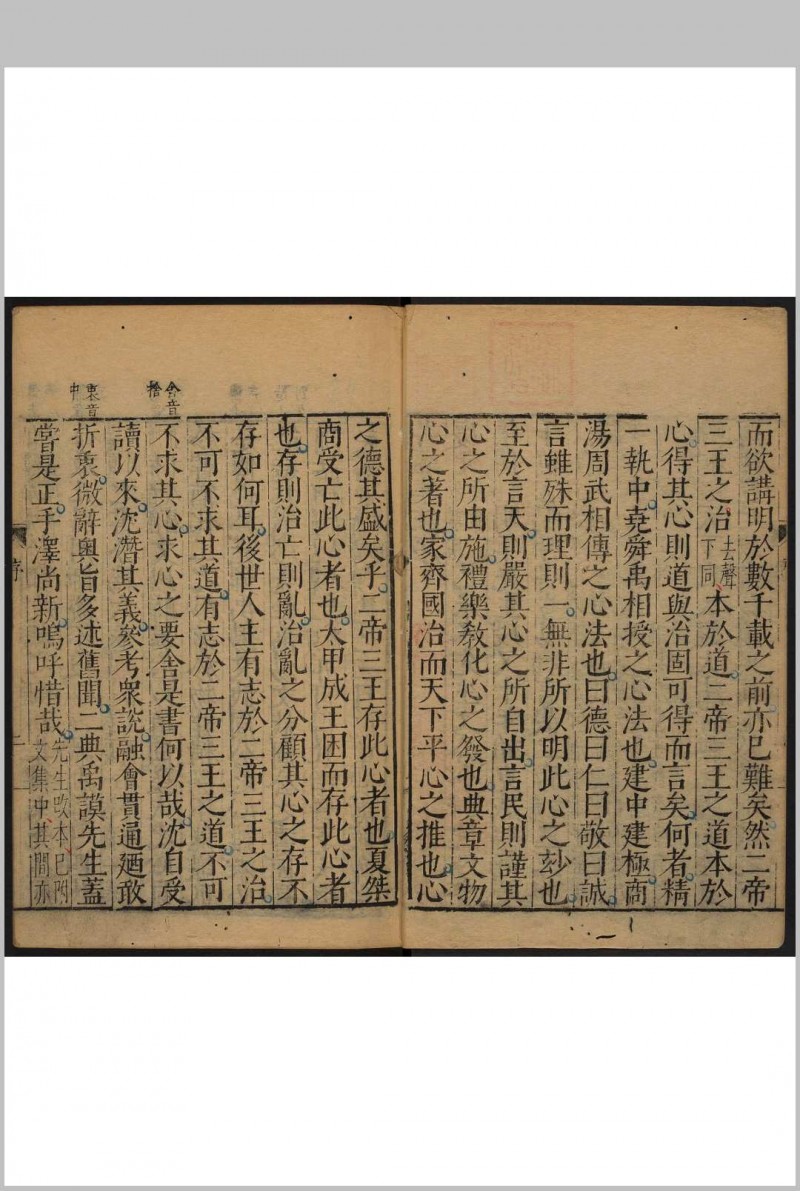 而欲講明於數千載之前亦已難矣然二帝
三王之治去聲下同本於道二帝三王之道本於
心得其心則道與治固可得而言矣何者精
一執中堯舜禹相授之心法也建中建極商
湯周武相傳之心法也曰德曰仁曰敬曰誠
言雖殊而理則一無非所以明此心之玅也
至於言天則嚴其心之所自出言民則謹其
心之所由施禮樂教化心之發也典章文物
心之著也家齊國治而天下平心之推也心
之德其盛矣乎二帝三王存此心者也夏桀
商受亡此心者也太甲成王困而存此心者
也存則治亡則亂治亂之分顧其心之存不
存如何耳後世人主有志於二帝三王之治
不可不求其道有志於二帝三王之道不可
舍音捨
不求其心求心之要舍是書何以哉沈自受
讀以來沈潛其義參考衆說融會貫通廼敢
衷音中
折衷微辭奧旨多述舊聞二典禹謨先生蓋
嘗是正手澤尚新嗚呼惜哉先生改本已附文集中其間亦
序
二